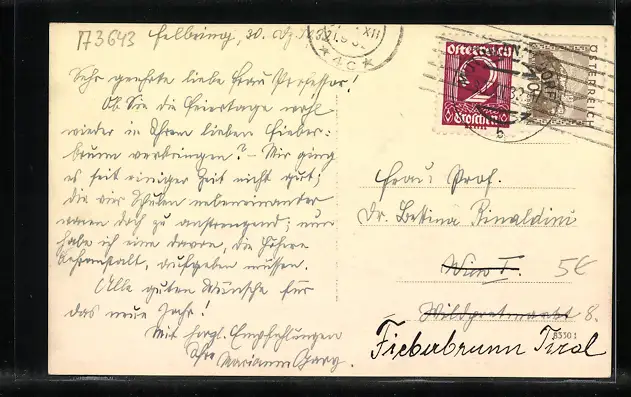 A3643 Fellring, 30. 
Sehr geehrte liebe Frau Professor!
Ob Sie die Feiertage wohl
wieder in Ihrem lieben Fieber-
brunn verbringen? – Mir ging
es seit einiger Zeit nicht gut;
die vier Schulen nebeneinander
waren doch zu anstrengend; nun
habe ich eine davon, die Höhere
Lehranstalt, aufgeben müssen.
Alle guten Wünsche für
das neue Jahr!
Mit herzl. Empfehlungen
Ihre
Marianne
XII
* 4c *
Österreich
2
Groschen
ÖSTERREICH
Frau Prof.
Dr. Bettina Rinaldini
Wien I.
5€
Wildpretmarkt 8.
83301
Fieberbrunn Tirol